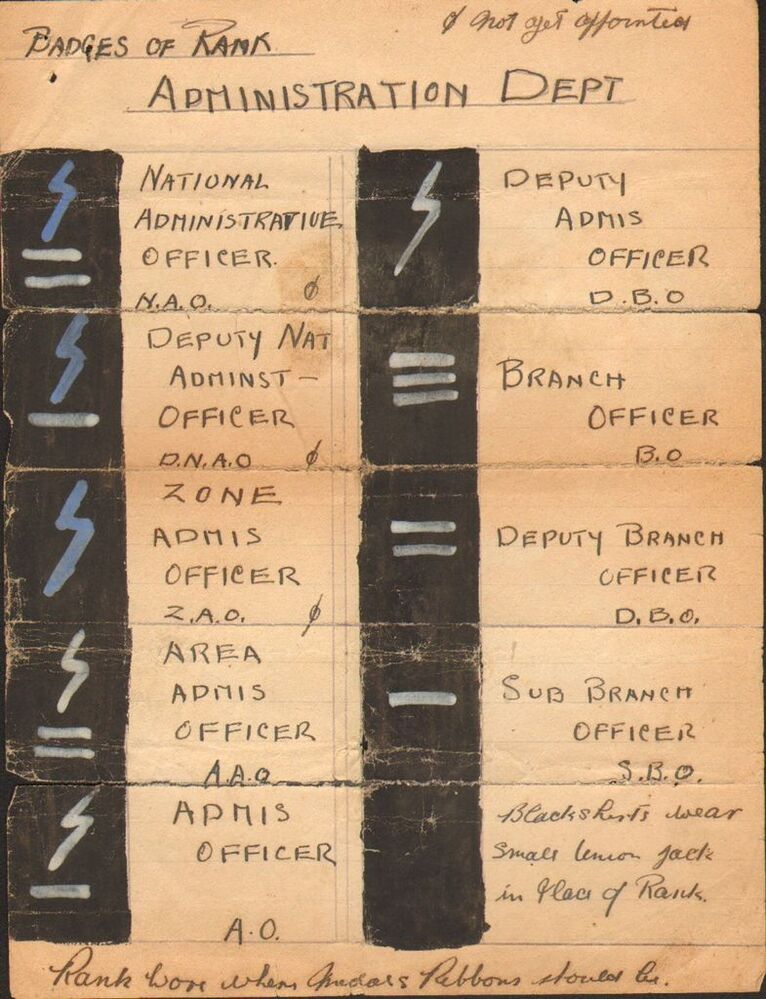 ø not yet appointed
BADGES OF RANK
ADMINISTRATION DEPT
NATIONAL
ADMINISTRATIVE
OFFICER.
N.A.O. ø
DEPUTY NAT
ADMINST-
OFFICER
D.N.A.O ø
ZONE
ADMIS
OFFICER
Z.A.O. ø
AREA
ADMIS
OFFICER
A.A.O
ADMIS
OFFICER
A.O.
DEPUTY
ADMIS
OFFICER
D.B.O
BRANCH
OFFICER
B.O
DEPUTY BRANCH
OFFICER
D.B.O.
SUB BRANCH
OFFICER
S.B.O.
Blackshirts wear
small Union Jack
in Place of Rank.
Rank wore where medals Ribbons should be.